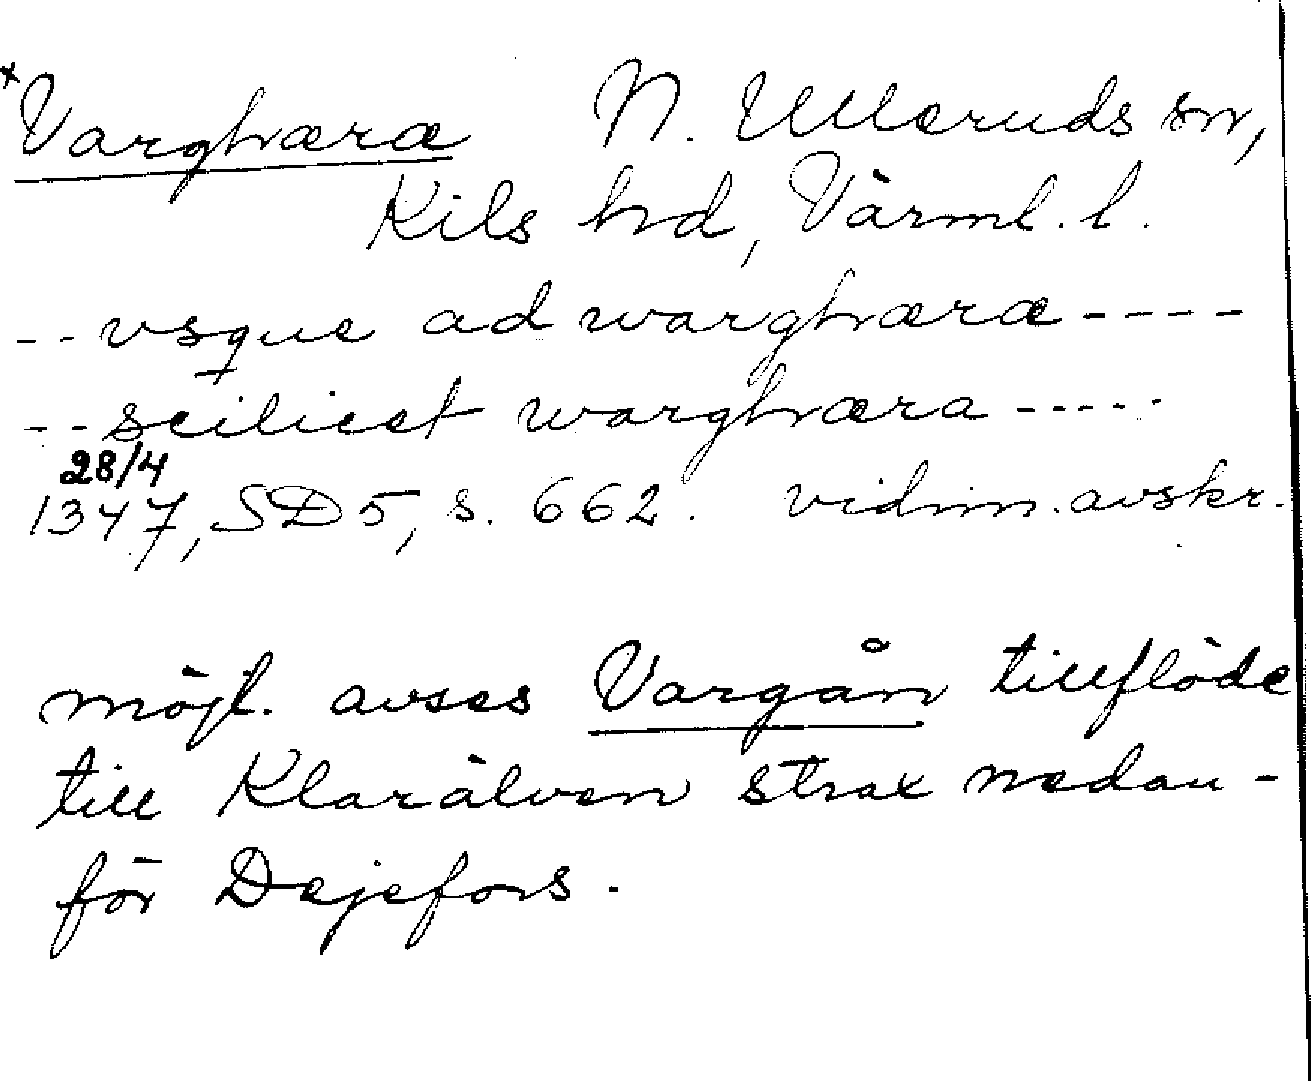 *Varghæræ N. Ulleruds sn,
Kils hd, Värml. l.
-- vsque ad warghæræ ----
-- scilicet warghæra -----
28/4
1347, SD 5, s. 662. vidim. avskr.
möjl. avses Vargån tillflöde
till Klarälven strax nedan-
för Dejefors.